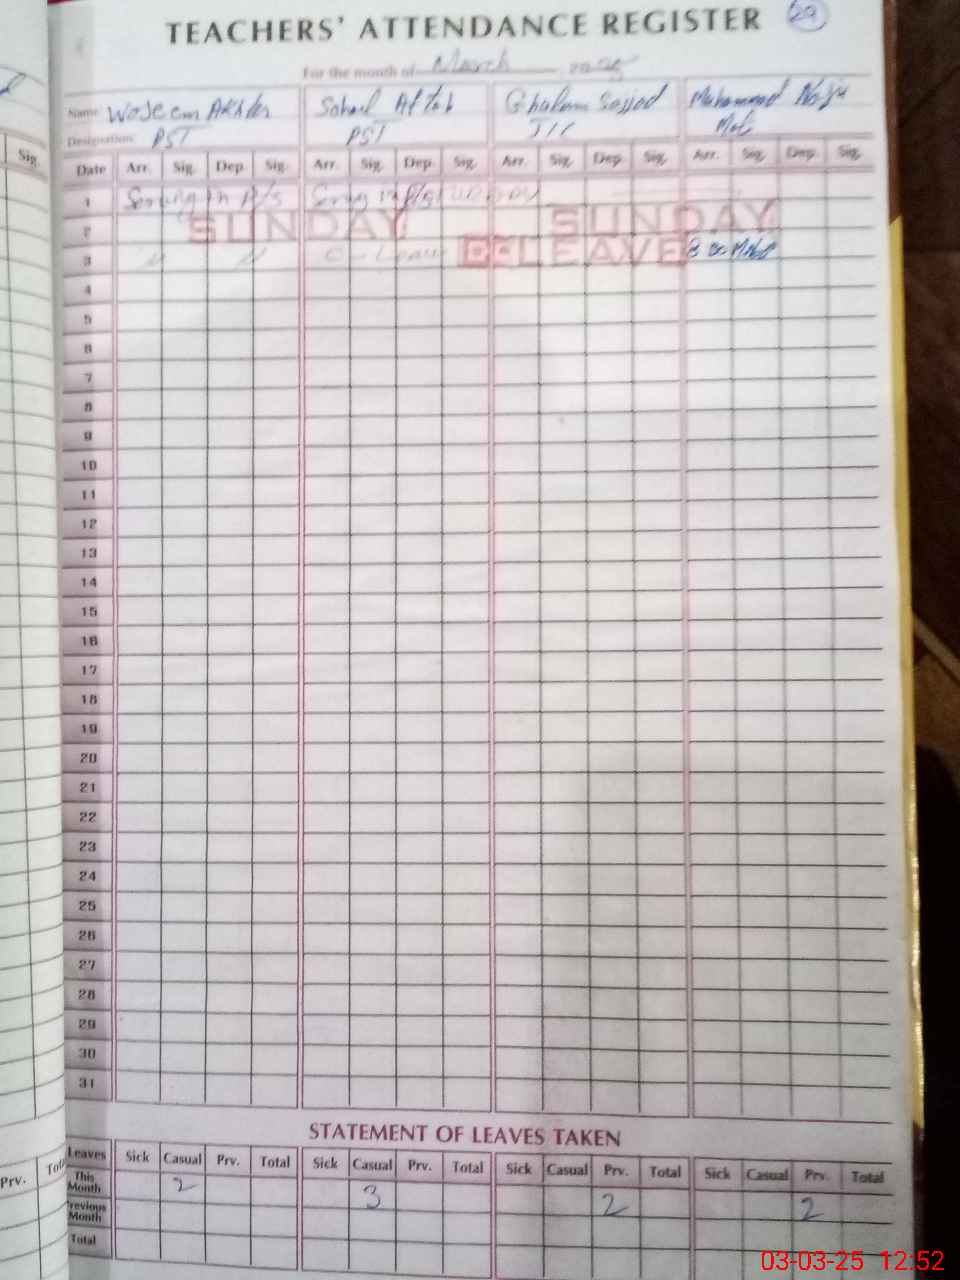 29
TEACHERS' ATTENDANCE REGISTER
For the month of March 2025
Name Waseem Akhter Sohail Aftab Ghulam Sajjad Muhammad
Designation PST PST
Sig.
Date Arr. Sig. Dep. Sig. Arr. Sig. Dep. Sig. Arr. Sig. Dep. Sig. Arr. Sig. Dep. Sig.
1 Serving in P/S Serving in P/S
2 SUNDAY SUNDAY
3 〃 〃 C-Leave LEAVE
4
5
6
7
8
9
10
11
12
13
14
15
16
17
18
19
20
21
22
23
24
25
26
27
28
29
30
31
STATEMENT OF LEAVES TAKEN
Prv. Total Leaves Sick Casual Prv. Total Sick Casual Prv. Total Sick Casual Prv. Total Sick Casual Prv. Total
This Month 2 3 2 2
Previous Month
Total
03-03-25 12:52